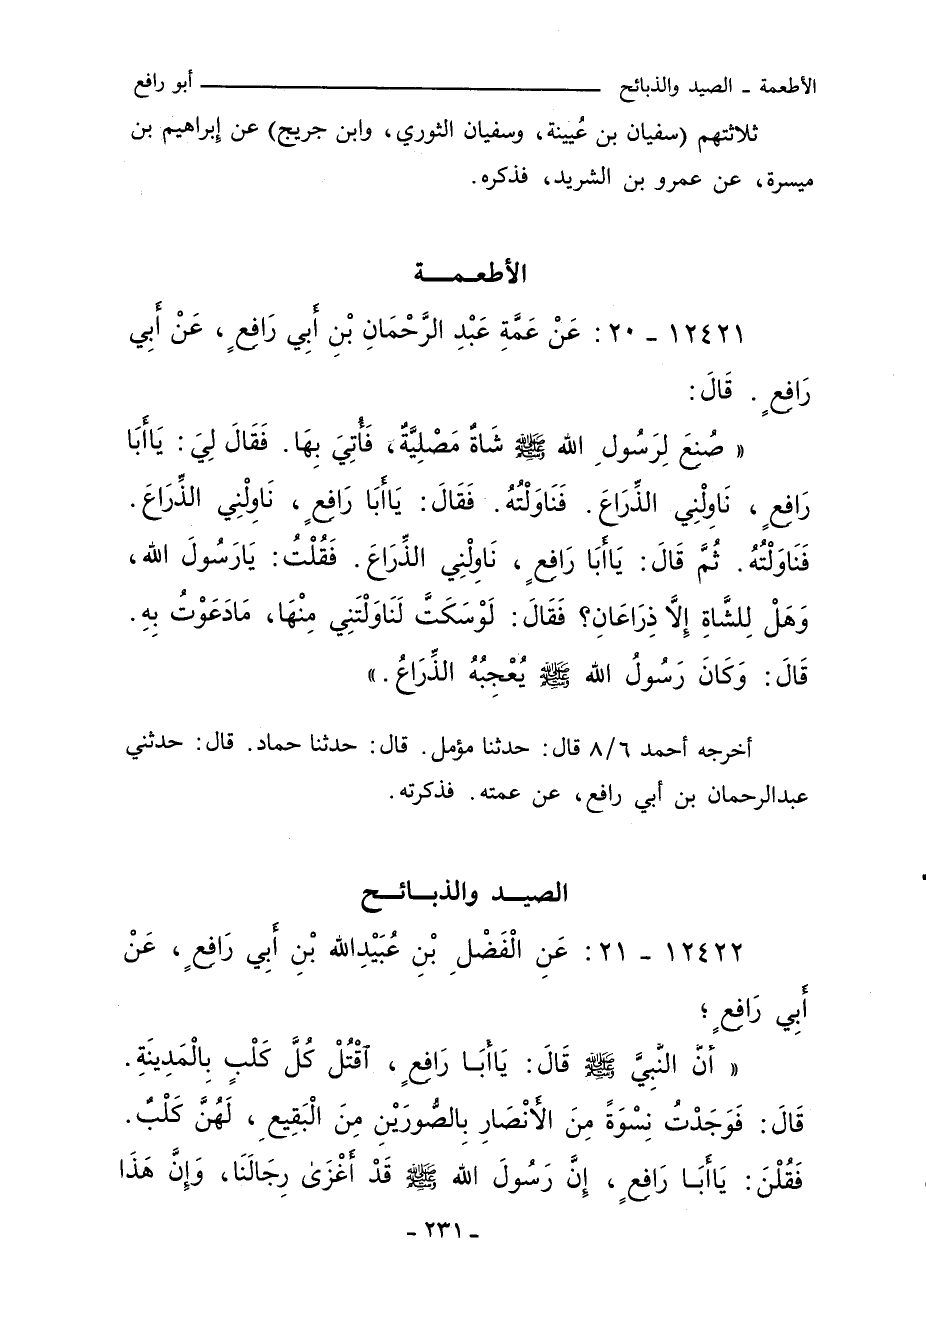 الأطعمة ـ الصيد والذبائح ـــــــــ أبو رافع
ثلاثتهم (سفيان بن عُيينة، وسفيان الثوري، وابن جريج) عن إبراهيم بن
ميسرة، عن عمرو بن الشريد، فذكره.
الأطعـمـــة
١٢٤٢١ ـ ٢٠ : عَنْ عَمَّةِ عَبْدِ الرَّحْمَانِ بْنِ أَبِي رَافِعٍ ، عَنْ أَبِي
رَافِعٍ . قَالَ:
« صُنِعَ لِرَسُولِ الله ﷺ شَاةٌ مَصْلِيَّةٌ، فَأُتِيَ بِهَا. فَقَالَ لِيَ: يَاأَبَا
رَافِعٍ ، نَاوِلْنِي الذِّرَاعَ. فَنَاوَلْتُهُ. فَقَالَ: يَاأَبَا رَافِعٍ ، نَاوِلْنِي الذِّرَاعَ.
فَنَاوَلْتُهُ. ثُمَّ قَالَ: يَاأَبَا رَافِعٍ ، نَاوِلْنِي الذِّرَاعَ. فَقُلْتُ: يَارَسُولَ الله،
وَهَلْ لِلشَّاةِ إِلَّا ذِرَاعَانِ؟ فَقَالَ: لَوْسَكَتَّ لَنَاوَلْتَنِي مِنْهَا، مَادَعَوْتُ بِهِ.
قَالَ: وَكَانَ رَسُولُ الله ﷺ يُعْجِبُهُ الذِّرَاعُ.»
أخرجه أحمد ٨/٦ قال: حدثنا مؤمل. قال: حدثنا حماد. قال: حدثني
عبدالرحمان بن أبي رافع، عن عمته. فذكرته.
الصيــد والذبــائــح
١٢٤٢٢ ـ ٢١ : عَنِ الْفَضْلِ بْنِ عُبَيْدِالله بْنِ أَبِي رَافِعٍ ، عَنْ
أَبِي رَافِعٍ ؛
« أَنَّ النَّبِيَّ ﷺ قَالَ: يَاأَبَـا رَافِعٍ ، ٱقْتُلْ كُلَّ كَلْبٍ بِالْمَدِينَةِ.
قَالَ: فَوَجَدْتُ نِسْوَةً مِنَ الأَنْصَارِ بِالصُّورَيْنِ مِنَ الْبَقِيعِ ، لَهُنَّ كَلْبٌ.
فَقُلْنَ: يَاأَبَـا رَافِعٍ ، إِنَّ رَسُولَ الله ﷺ قَدْ أَغْزَىٰ رِجَالَنَا، وَإِنَّ هَذَا
ـ ٢٣١ ـ